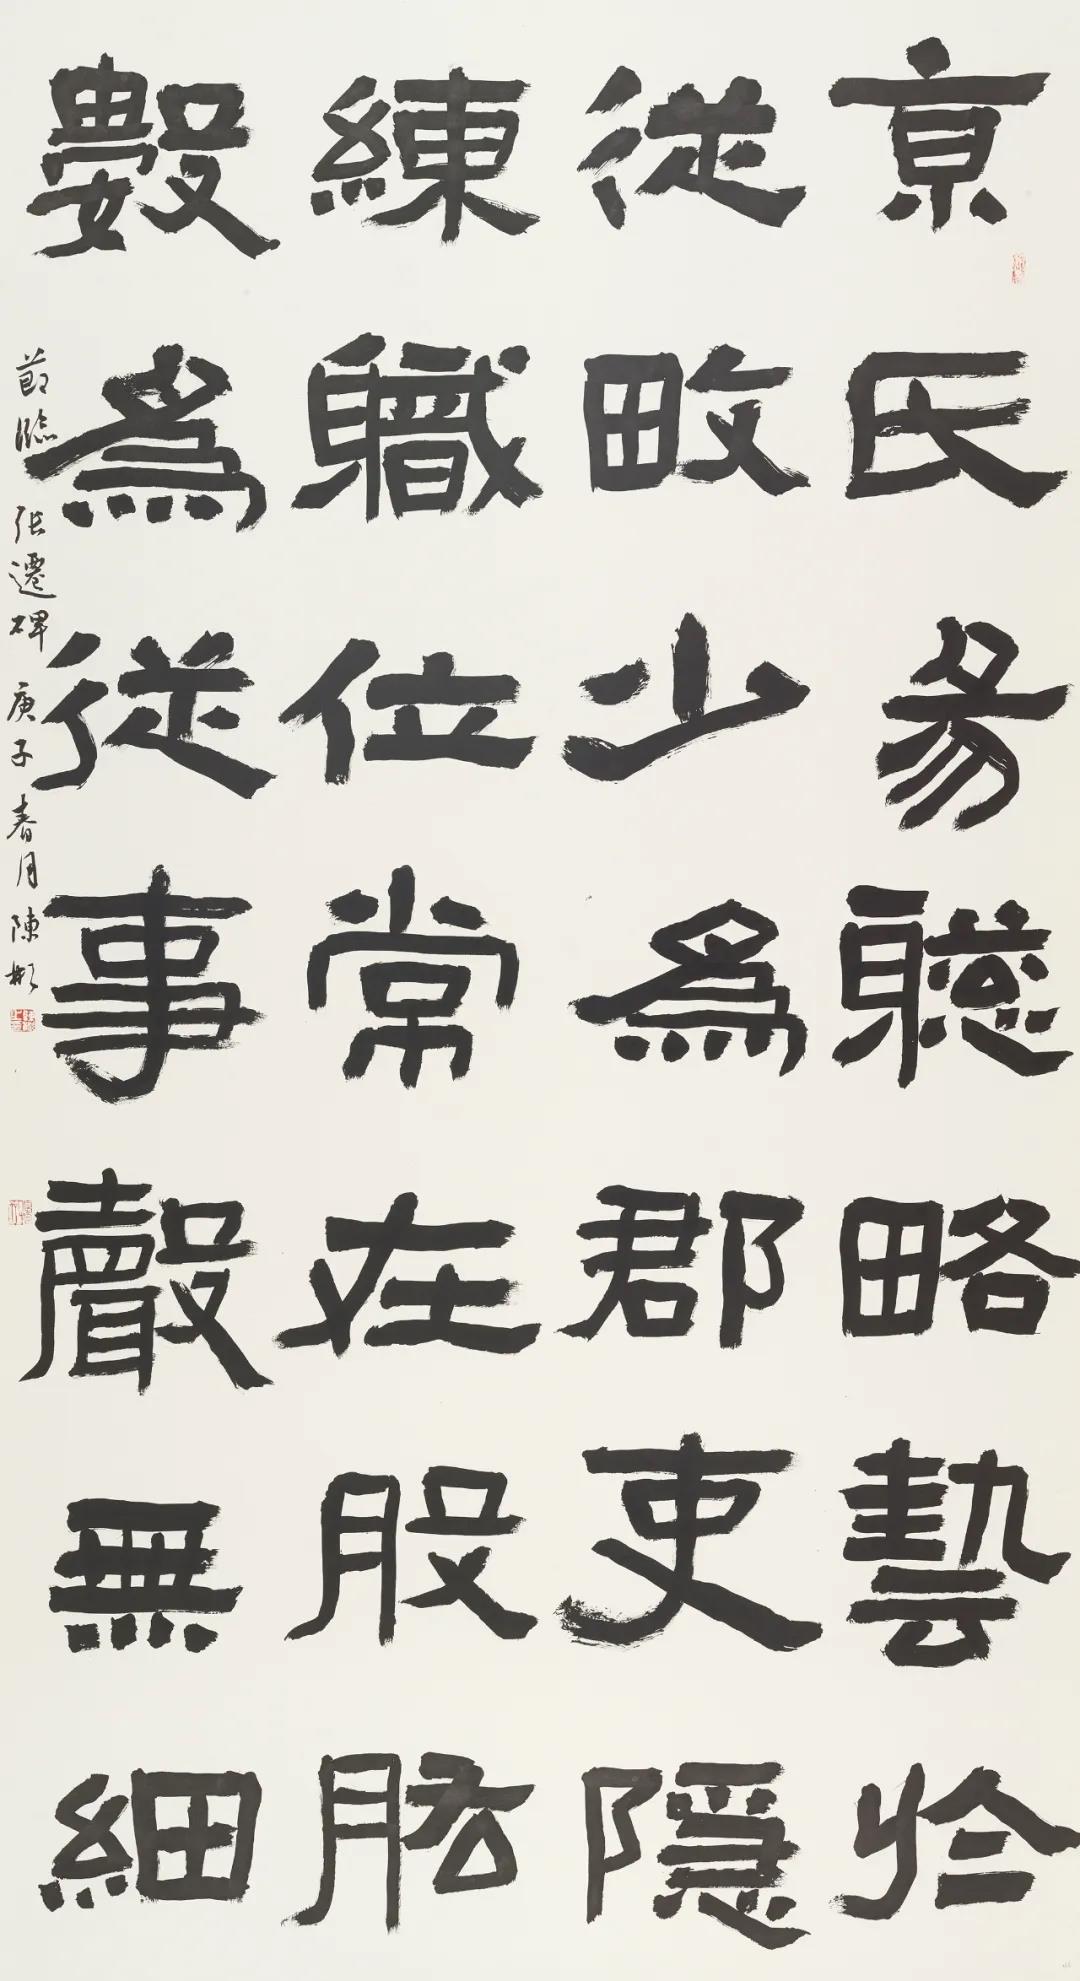 京氏易聰略藝於
從畋少為郡吏隱
練職位常在股肱
數為從事聲無細
節臨張遷碑庚子春月陳彬